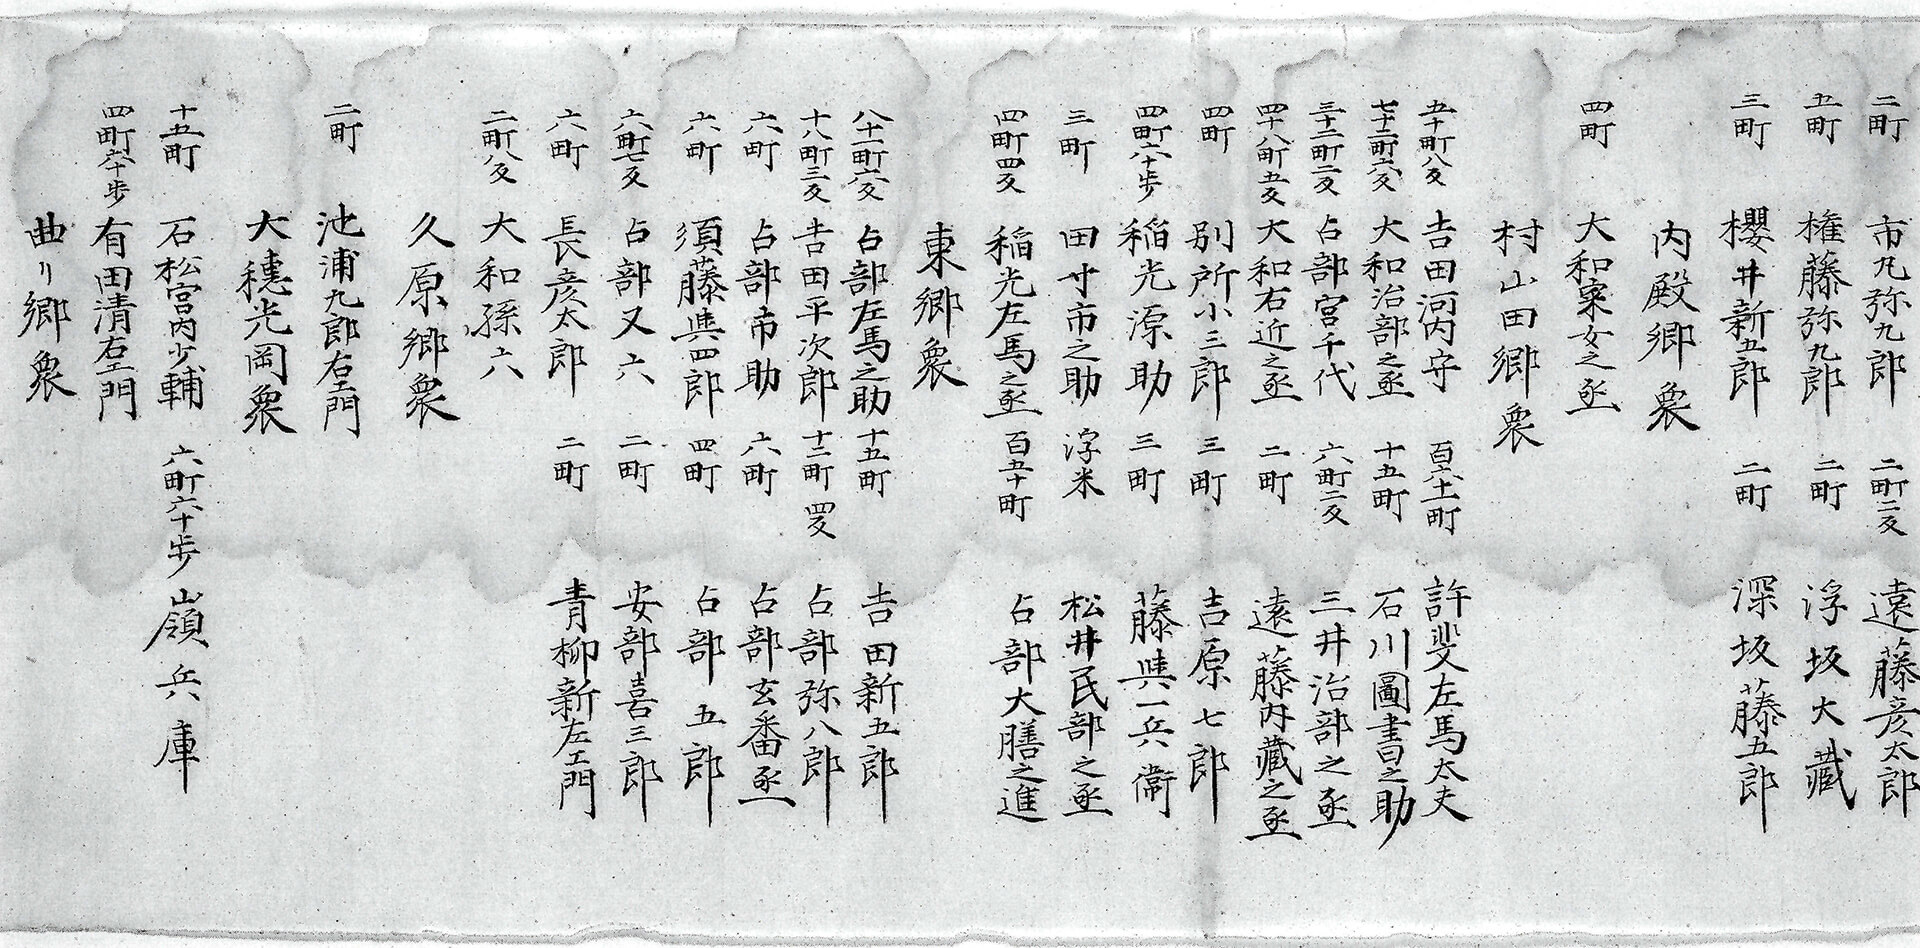 二町 市丸弥九郎 二町二反 遠藤彦太郎
五町 権藤弥九郎 二町 浮坂大蔵
三町 櫻井新五郎 二町 深坂藤五郎
内殿郷衆
四町 大和采女之丞
村山田郷衆
五十町八反 吉田河内守 百六十一町 許斐左馬太夫
七十二町六反 大和治部之丞 十五町 石川圖書之助
三十二町二反 占部宮千代 六町二反 三井治部之丞
四十八町五反 大和右近之丞 二町 遠藤内藏之丞
四町 別所小三郎 三町 吉原七郎
四町六十歩 稲光源助 三町 藤與一兵衛
三町 田寸市之助 浮米 松井民部之丞
四町四反 稲光左馬之丞 百五十町 占部大膳之進
東郷衆
八十一町六反 占部左馬之助 十五町 吉田新五郎
十八町三反 吉田平次郎 十二町四反 占部弥八郎
六町 占部市助 六町 占部玄番丞
六町 須藤與四郎 四町 占部五郎
六町七反 占部又六 二町 安部喜三郎
六町 長彦太郎 二町 青柳新左エ門
二町八反 大和孫六
久原郷衆
二町 池浦九郎右エ門
大穂光岡衆
十五町 石松宮内少輔 六町六十歩 嶺兵庫
四町六十歩 有田清右エ門
曲リ郷衆